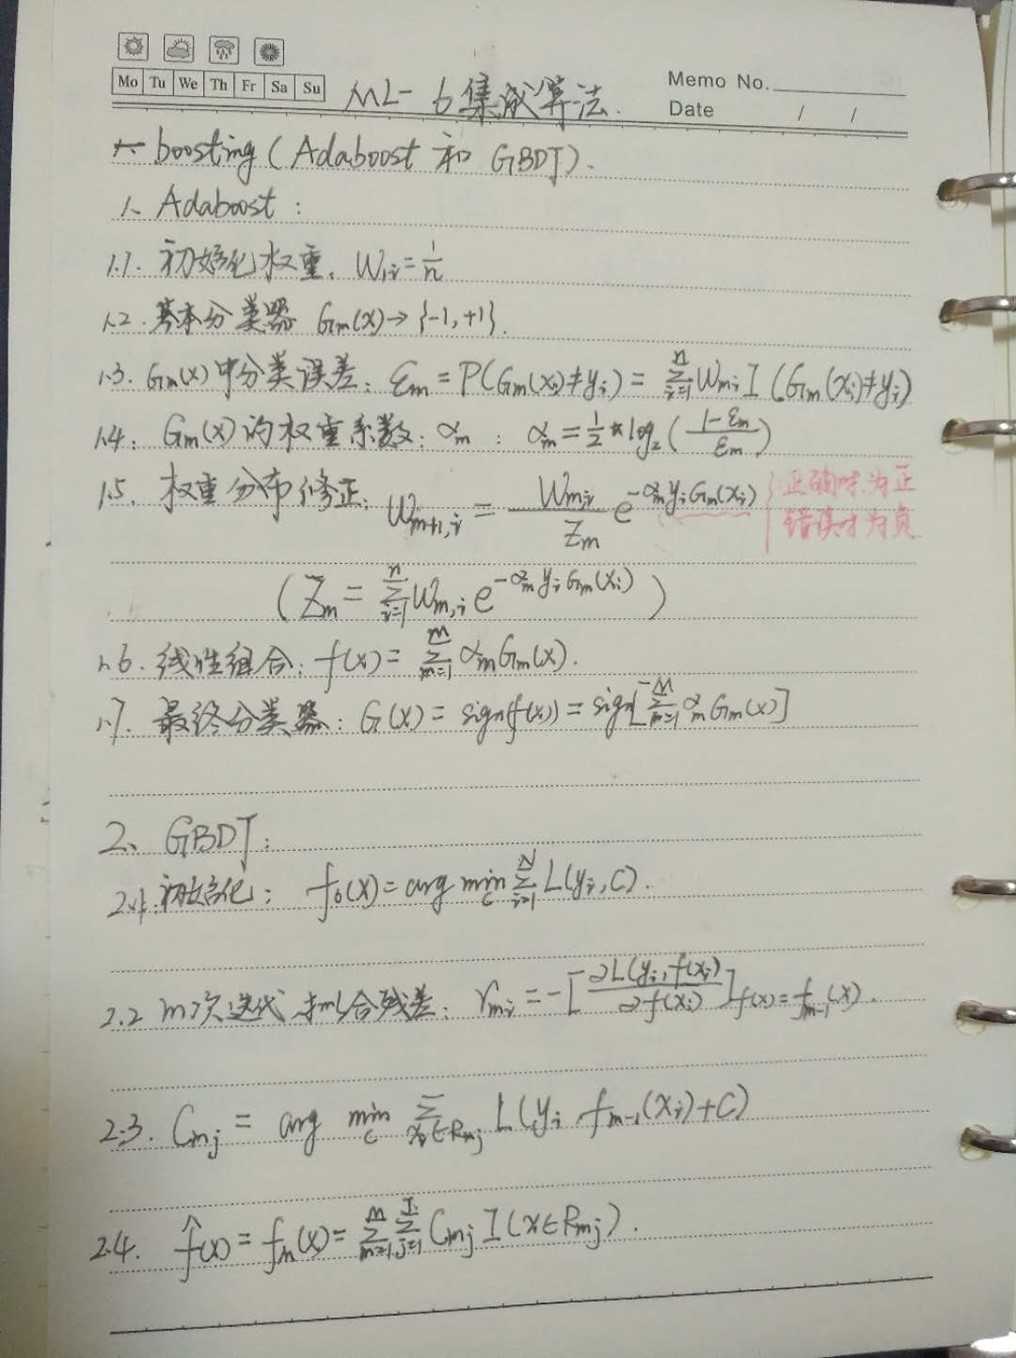 Mo Tu We Th Fr Sa Su
Memo No.
Date / /
ML-6集成算法.
一 boosting (Adaboost 和 GBDT).
1、Adaboost:
1.1. 初始化权重. W₁ᵢ = 1/n
1.2. 基本分类器 Gm(x) → {-1, +1}.
1.3. Gm(x)中分类误差: εm = P(Gm(xi)≠yi) = Σ_{i=1}^{n} Wmi I (Gm(xi)≠yi)
1.4. Gm(x)的权重系数: αm : αm = 1/2 * log₂((1-εm)/εm)
1.5. 权重分布修正: Wm+1,i = (Wm,i/Zm) e^{-αm yi Gm(xi)} {正确时为正
错误时为负
(Zm = Σ_{i=1}^{n} Wm,i e^{-αm yi Gm(xi)})
1.6. 线性组合: f(x) = Σ_{m=1}^{M} αm Gm(x).
1.7. 最终分类器: G(x) = sign(f(x)) = sign[Σ_{m=1}^{M} αm Gm(x)]
2、GBDT:
2.1. 初始化: f₀(x) = arg min_c Σ_{i=1}^{N} L(yi, C).
2.2 m次迭代 拟合残差: rmi = -[∂L(yi, f(xi))/∂f(xi)]f(x)=fm-1(x).
2.3. Cmj = arg min_c Σ_{xi∈Rmj} L(yi, fm-1(xi)+C)
2.4. f̂(x) = fm(x) = Σ_{m=1}^{M} Σ_{j=1}^{J} Cmj I(x∈Rmj).